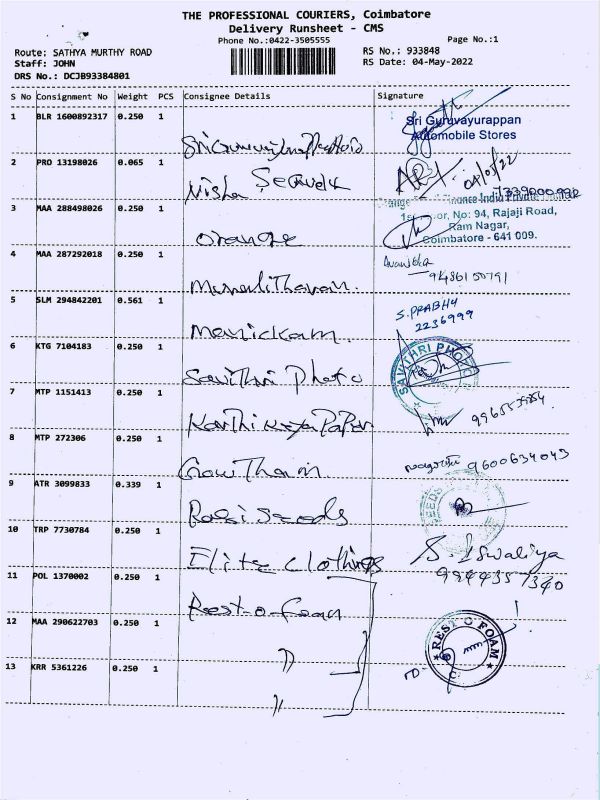 THE PROFESSIONAL COURIERS, Coimbatore
Delivery Runsheet - CMS
Phone No.:0422-3505555
Page No.:1
Route: SATHYA MURTHY ROAD
RS No.: 933848
Staff: JOHN
RS Date: 04-May-2022
DRS No.: DCJB93384801
S No Consignment No Weight PCS Consignee Details Signature
1 BLR 1600892317 0.250 1
Sri Guruvayurappan
Automobile Stores
2 PRO 13198026 0.065 1 Nisha
04/05/22
3 MAA 288498026 0.250 1 Orange
1st Floor, No: 94, Rajaji Road,
Ram Nagar,
Coimbatore - 641 009.
4 MAA 287292018 0.250 1 Muralitharan.
5 SLM 294842201 0.561 1 Manickam.
S. PRABHU
2236999
6 KTG 7104183 0.250 1 Savithri Photo
SAVITHRI PHOTO
7 MTP 1151413 0.250 1 Karthikeya Paper
8 MTP 272306 0.250 1 Gowtham
9600634043
9 ATR 3099833 0.339 1 Rasi Seeds
SEEDS
10 TRP 7730784 0.250 1 Elite Clothings
9944357340
11 POL 1370002 0.250 1 Rest-o-foam
12 MAA 290622703 0.250 1 "
REST O FOAM
13 KRR 5361226 0.250 1 "